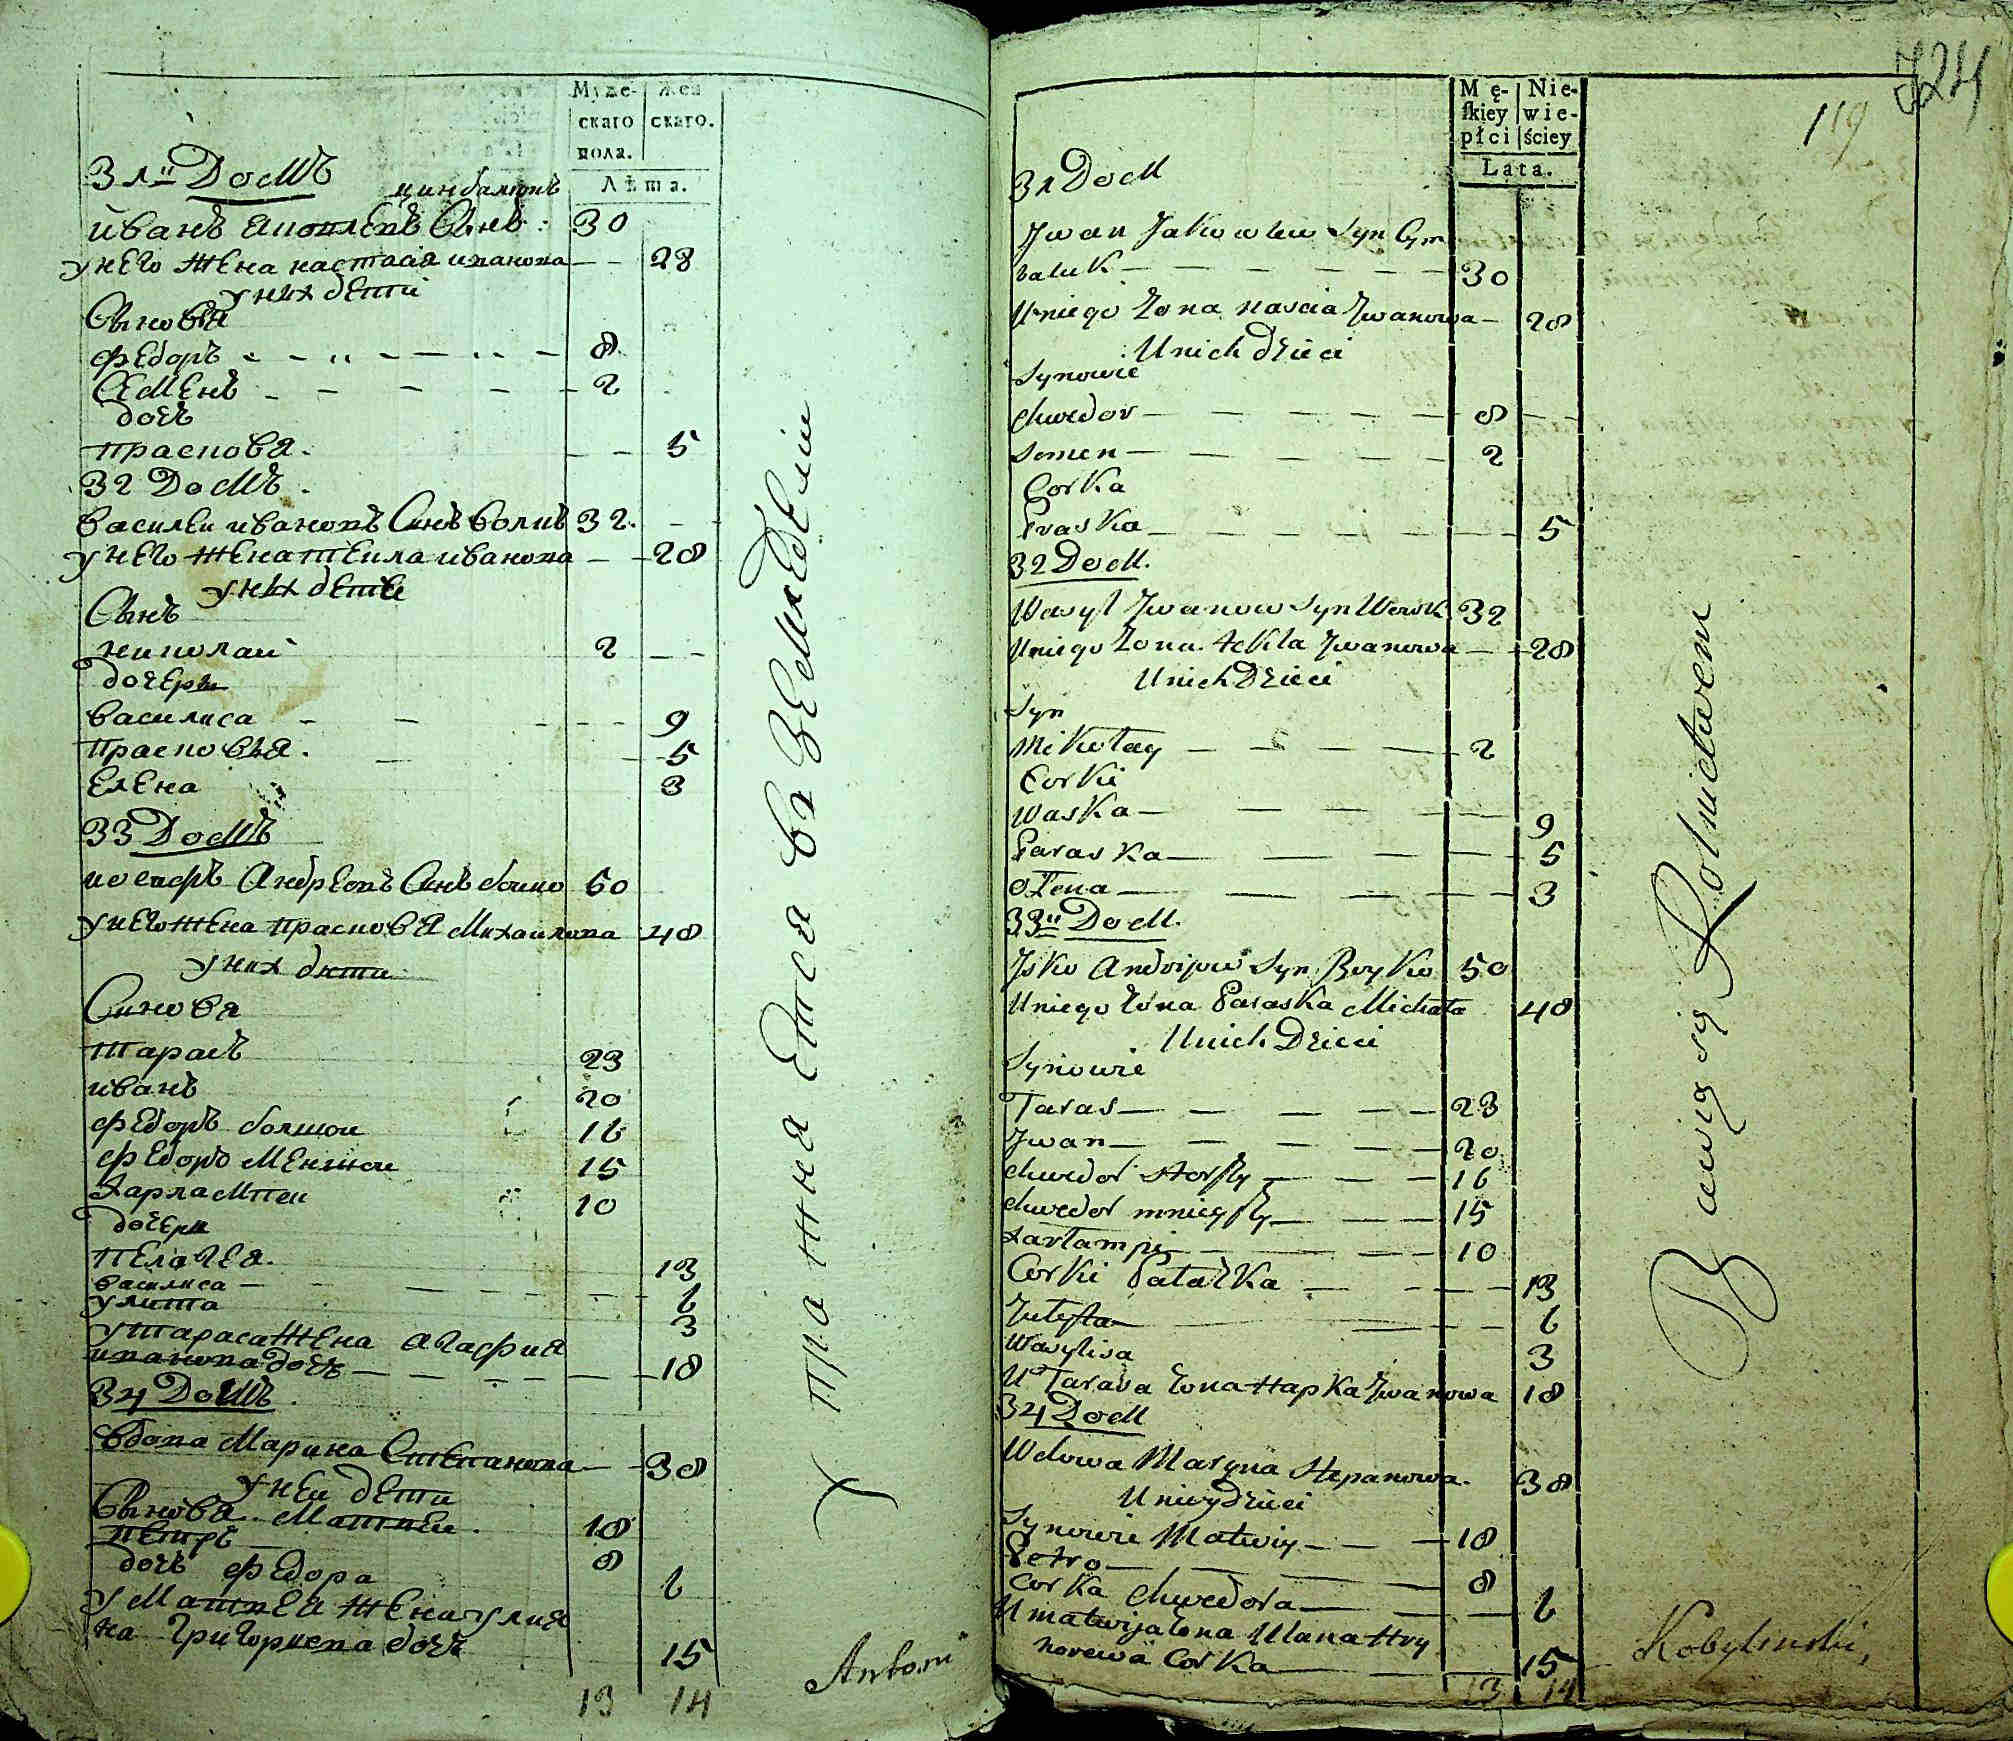 Муже- Жен
скаго скаго.
пола.
Лѣта.
31й Домъ
цимбалюкъ
иванъ яковлевъ Сынъ : 30
у него жена настасія иванова — — 28
у них дети
Сыновя
федоръ - - - - 8
Семенъ - - - - 2
дочъ
прасковя. — — 5
32 Домъ.
василеи ивановъ Синъ 32.
у него жена текла иванова — — 28
у них дети
Сынъ
николаи 2 — -
дочери
василиса - - - - 9
прасковья. — 5
Елена 3
33 Домъ
иосифъ Андреевъ Синъ боико 50
у него жена прасковя Михаилова 48
у них дети
Синовя
тарасъ 23
иванъ 20
федоръ болшои 16
федоръ Меншои 15
харлампеи 10
дочери
Пелагея. 13
василиса — 6
улита 3
у тараса жена агафия
иванова дочъ — — — — 18
34 Домъ.
вдова Марина Степанова — 38
у неи дети
Сыновя Матвеи. 18
петръ 8
дочъ федора 6
у Матвея жена улия
на григориева дочъ 15
13 14
Х пра жня Ется в ЗЕМлЕдЕлии
Antoni
724
119
Mę- Nie-
ſkiey wie-
płci ściey
Lata.
31 Dom
Jwan Jakowlew Syn Cym
baluk — — — — — — 30
U niego żona nascia Jwanowa — 28
U nich dzieci
Synowie
chwedor — — — — — 8 — —
Semen — — — — — 2
Corka
Praska — — — — — 5
32 Dom.
Wasyl Jwanow Syn 32
U niego żona tekla Jwanowa — — 28
U nich Dzieci
Syn
Mikołay — — — — — 2
Corki
Waska — — — — 9
Paraska — — — — 5
ołena — — — — 3
33ii Dom.
Jsko Andrijow Syn Boyko 50
U niego żona Paraska Michała 48
U nich Dzieci
Synowie
Taras — — — — — 23
Jwan — — — — — 20
chwedor starſzy — — — 16
chwedor mnieyſzy — — — 15
Xarłampi — — — 10
Corki Palażka — — — 13
Julyta — — — 6
Wasylisa 3
U Tarasa żona Hapka Jwanowa 18
34 Dom
Wdowa Maryna Stepanowa. 38
U niey Dzieci
Synowie Matwiy — — — 18
Petro — — — 8
Corka chwedora — — — 6
U matwija żona Ulana Hry
horewa Corka — — 15
13 14
Bawią się Rolnictwem
Kobylinski,